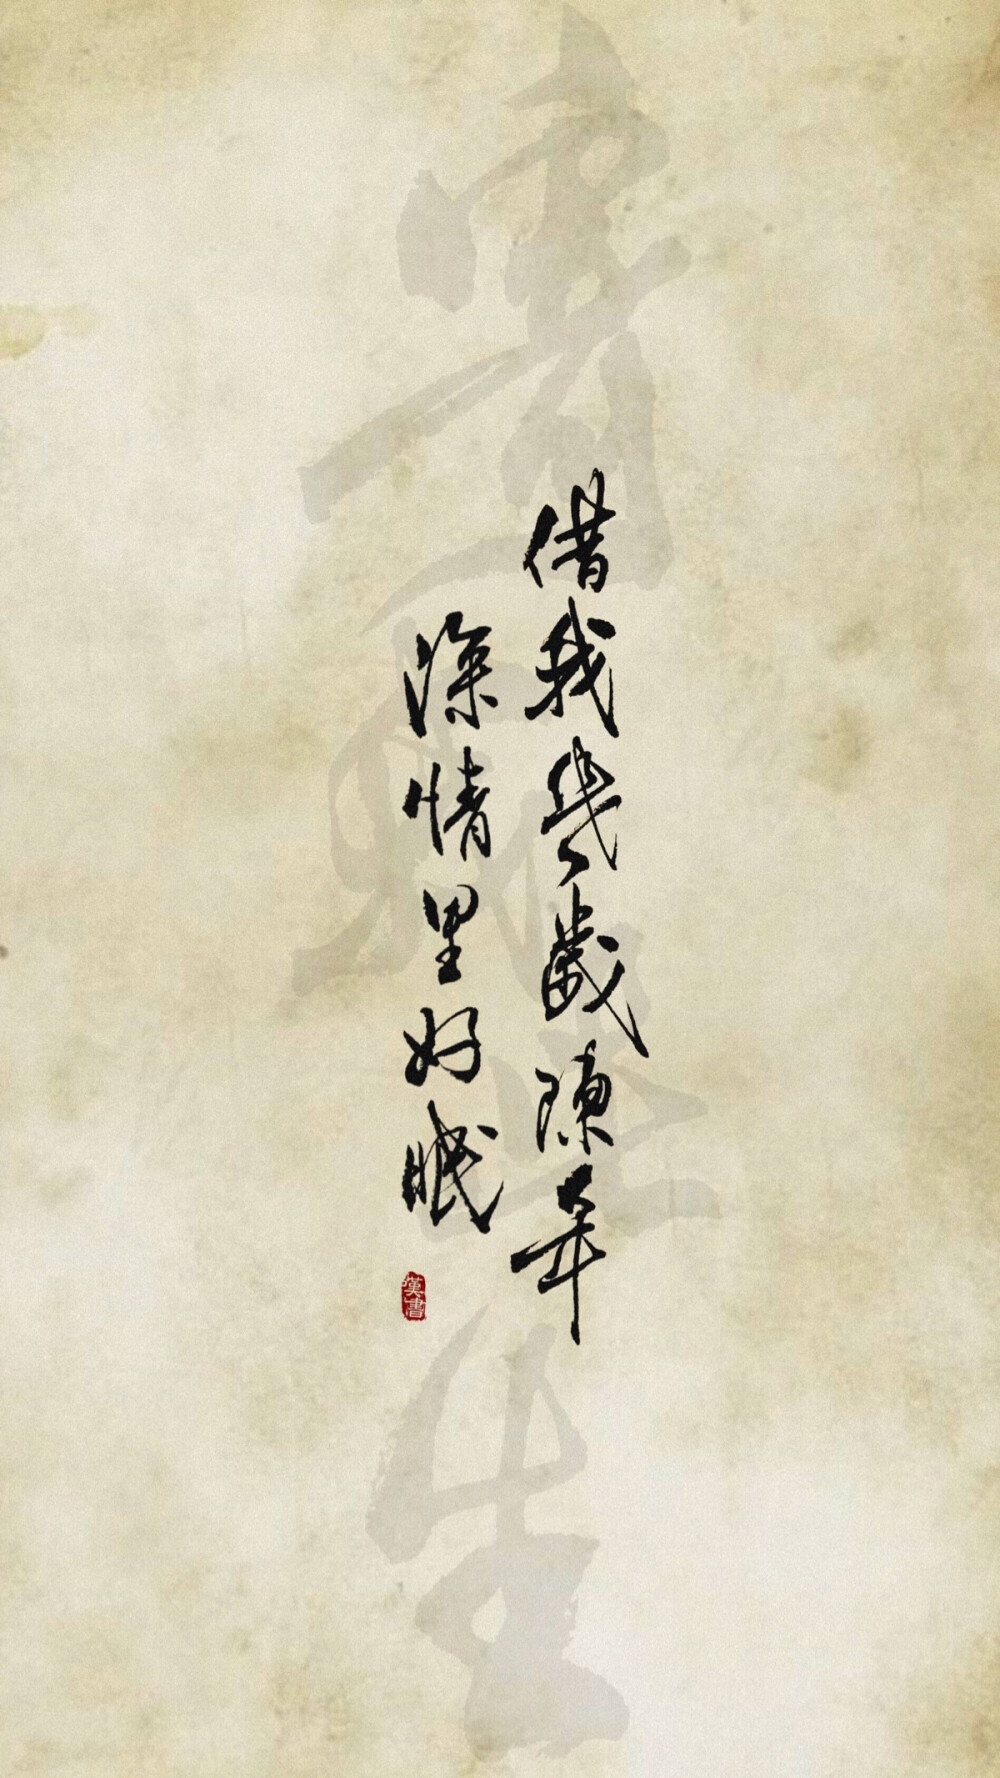 借我幾歲陳年
深情里好眠
漢書